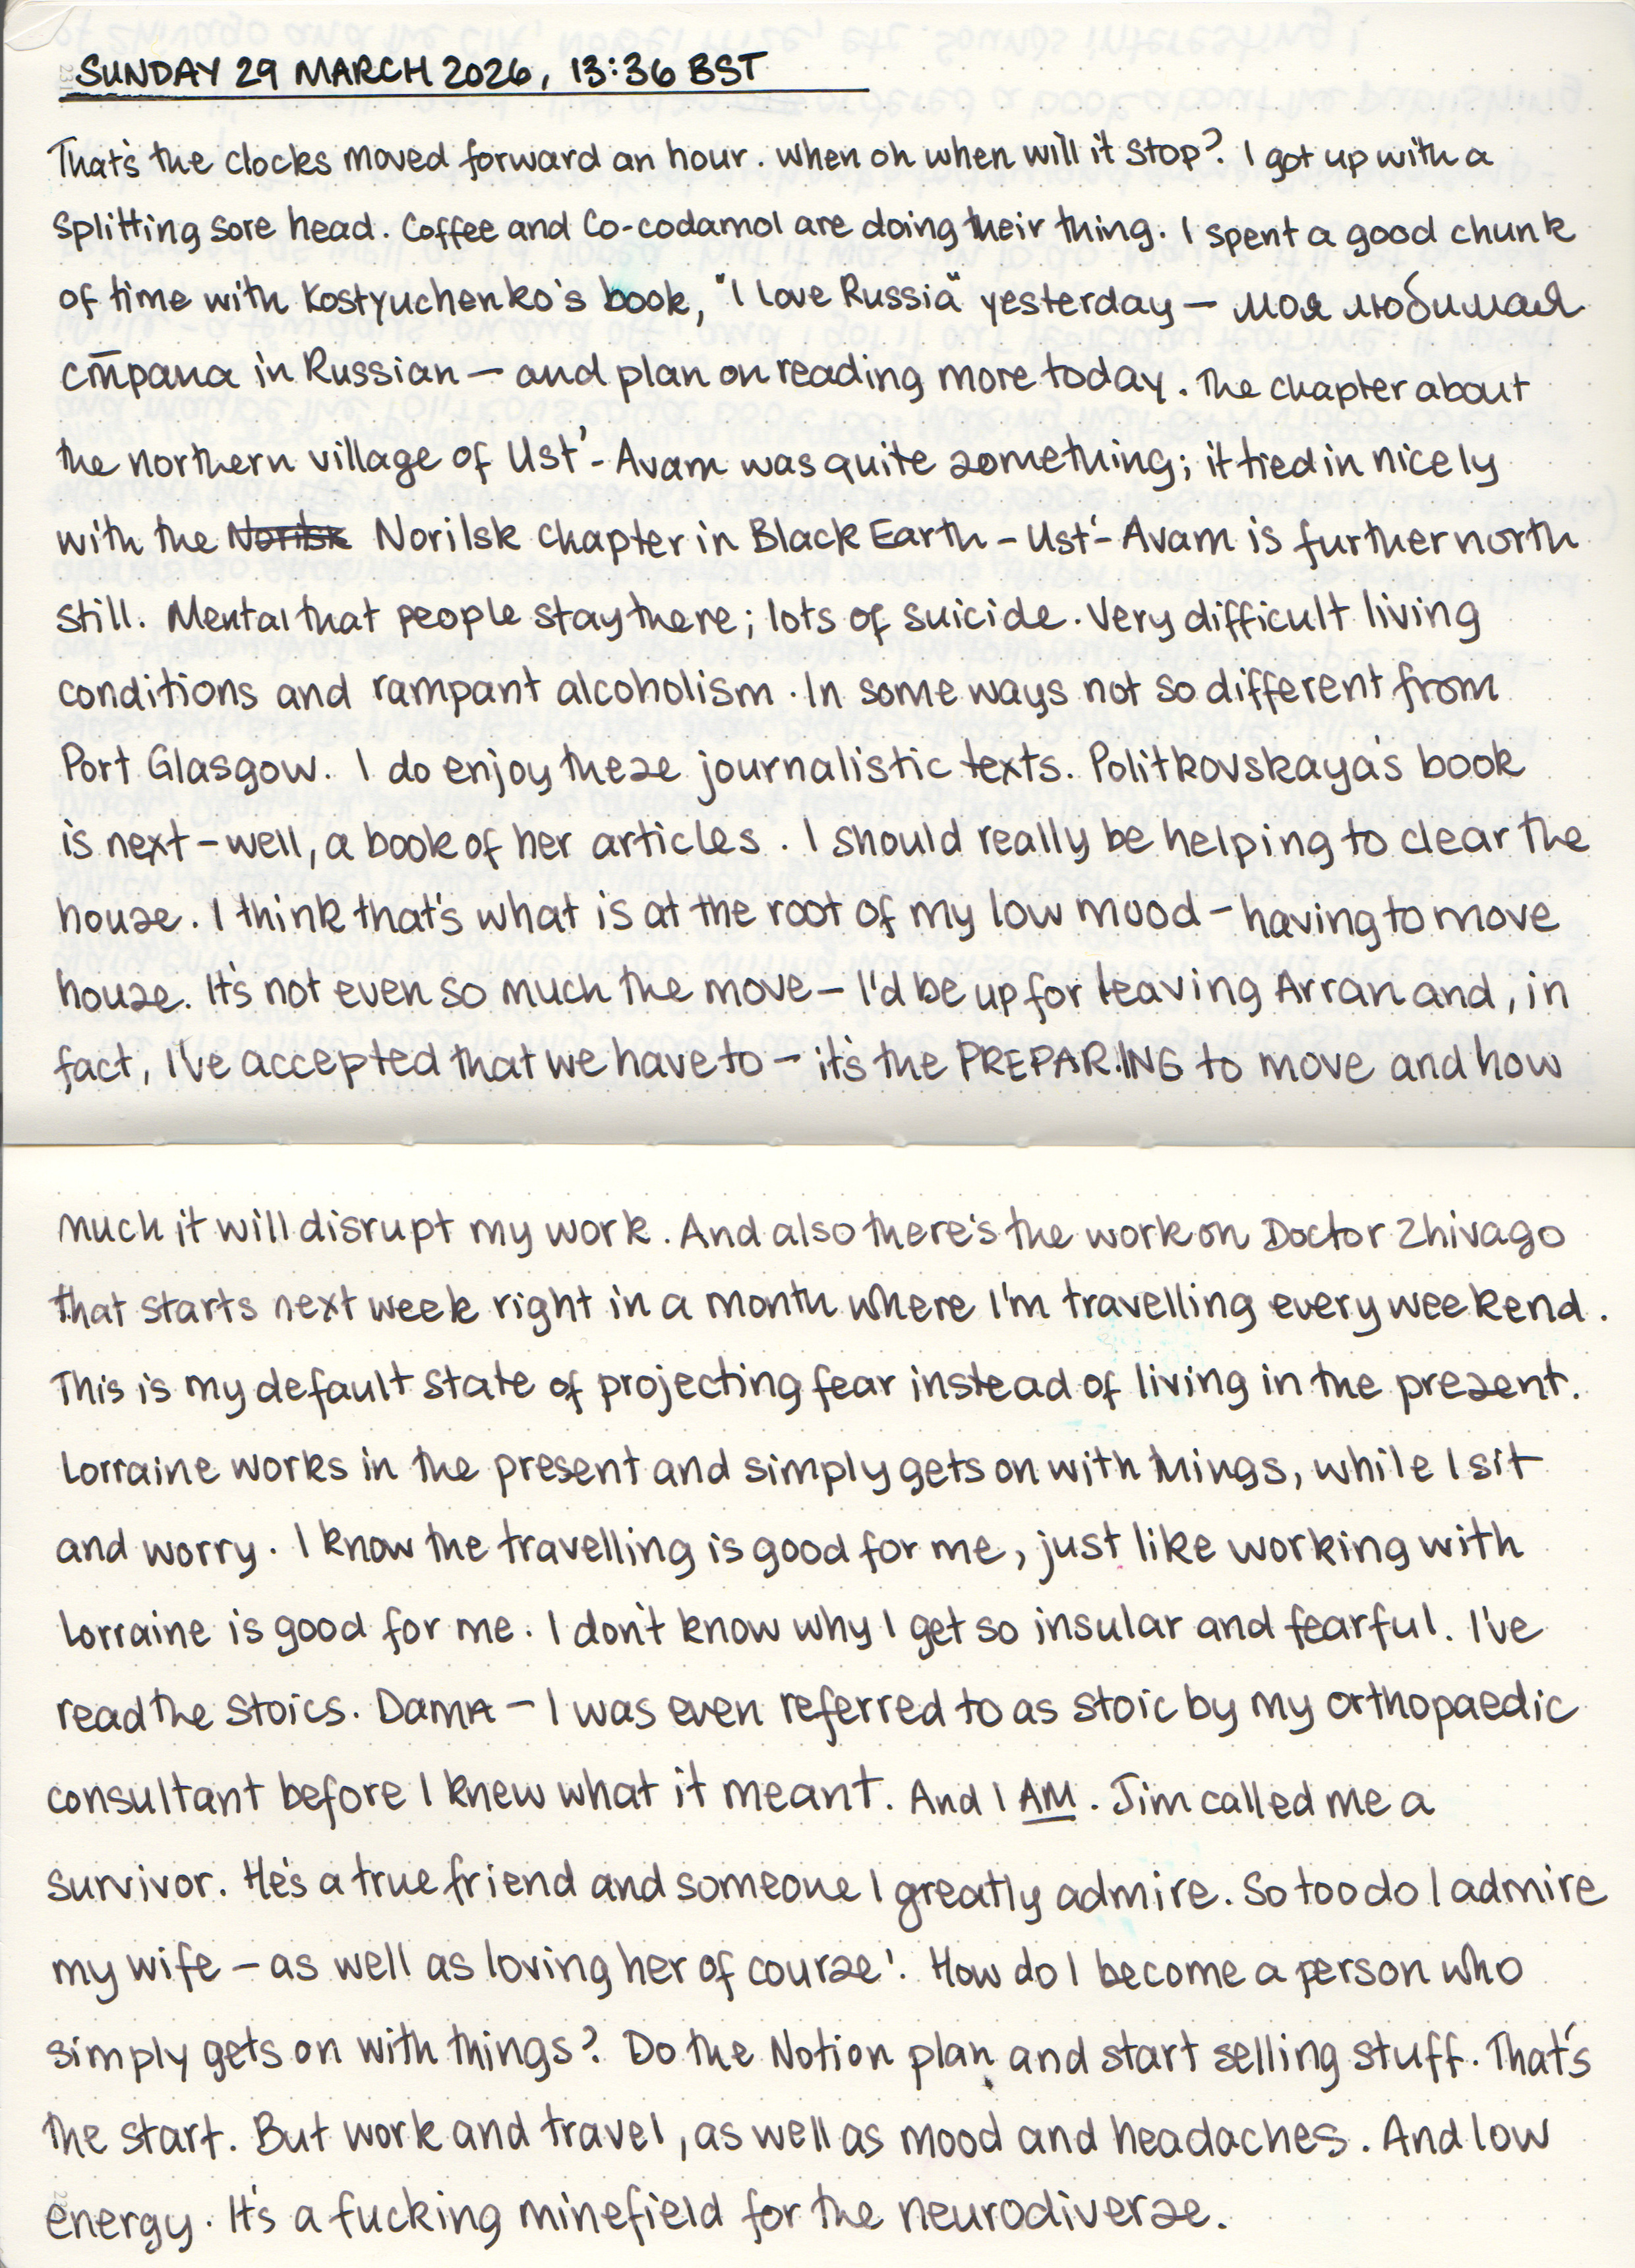 SUNDAY 29 MARCH 2026, 13:36 BST
That's the clocks moved forward an hour. When oh when will it stop? I got up with a
splitting sore head. Coffee and Co-codamol are doing their thing. I spent a good chunk
of time with Kostyuchenko's book, "I love Russia" yesterday – моя любимая
страна in Russian – and plan on reading more today. The chapter about
the northern village of Ust'-Avam was quite something; it tied in nicely
with the Norilsk Norilsk chapter in Black Earth – Ust'-Avam is further north
still. Mental that people stay there; lots of suicide. Very difficult living
conditions and rampant alcoholism. In some ways not so different from
Port Glasgow. I do enjoy these journalistic texts. Politkovskaya's book
is next – well, a book of her articles. I should really be helping to clear the
house. I think that's what is at the root of my low mood – having to move
house. It's not even so much the move – I'd be up for leaving Arran and, in
fact, I've accepted that we have to – it's the PREPARING to move and how
much it will disrupt my work. And also there's the work on Doctor Zhivago
that starts next week right in a month where I'm travelling every weekend.
This is my default state of projecting fear instead of living in the present.
Lorraine works in the present and simply gets on with things, while I sit
and worry. I know the travelling is good for me, just like working with
Lorraine is good for me. I don't know why I get so insular and fearful. I've
read the Stoics. Damn – I was even referred to as stoic by my orthopaedic
consultant before I knew what it meant. And I AM. Jim called me a
survivor. He's a true friend and someone I greatly admire. So too do I admire
my wife – as well as loving her of course! How do I become a person who
simply gets on with things? Do the Notion plan and start selling stuff. That's
the start. But work and travel, as well as mood and headaches. And low
energy. It's a fucking minefield for the neurodiverse.